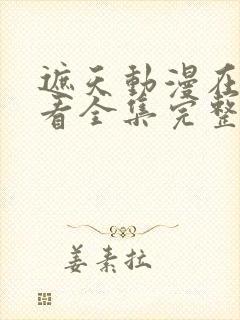 遮天動漫在
看全集完整
姜素拉